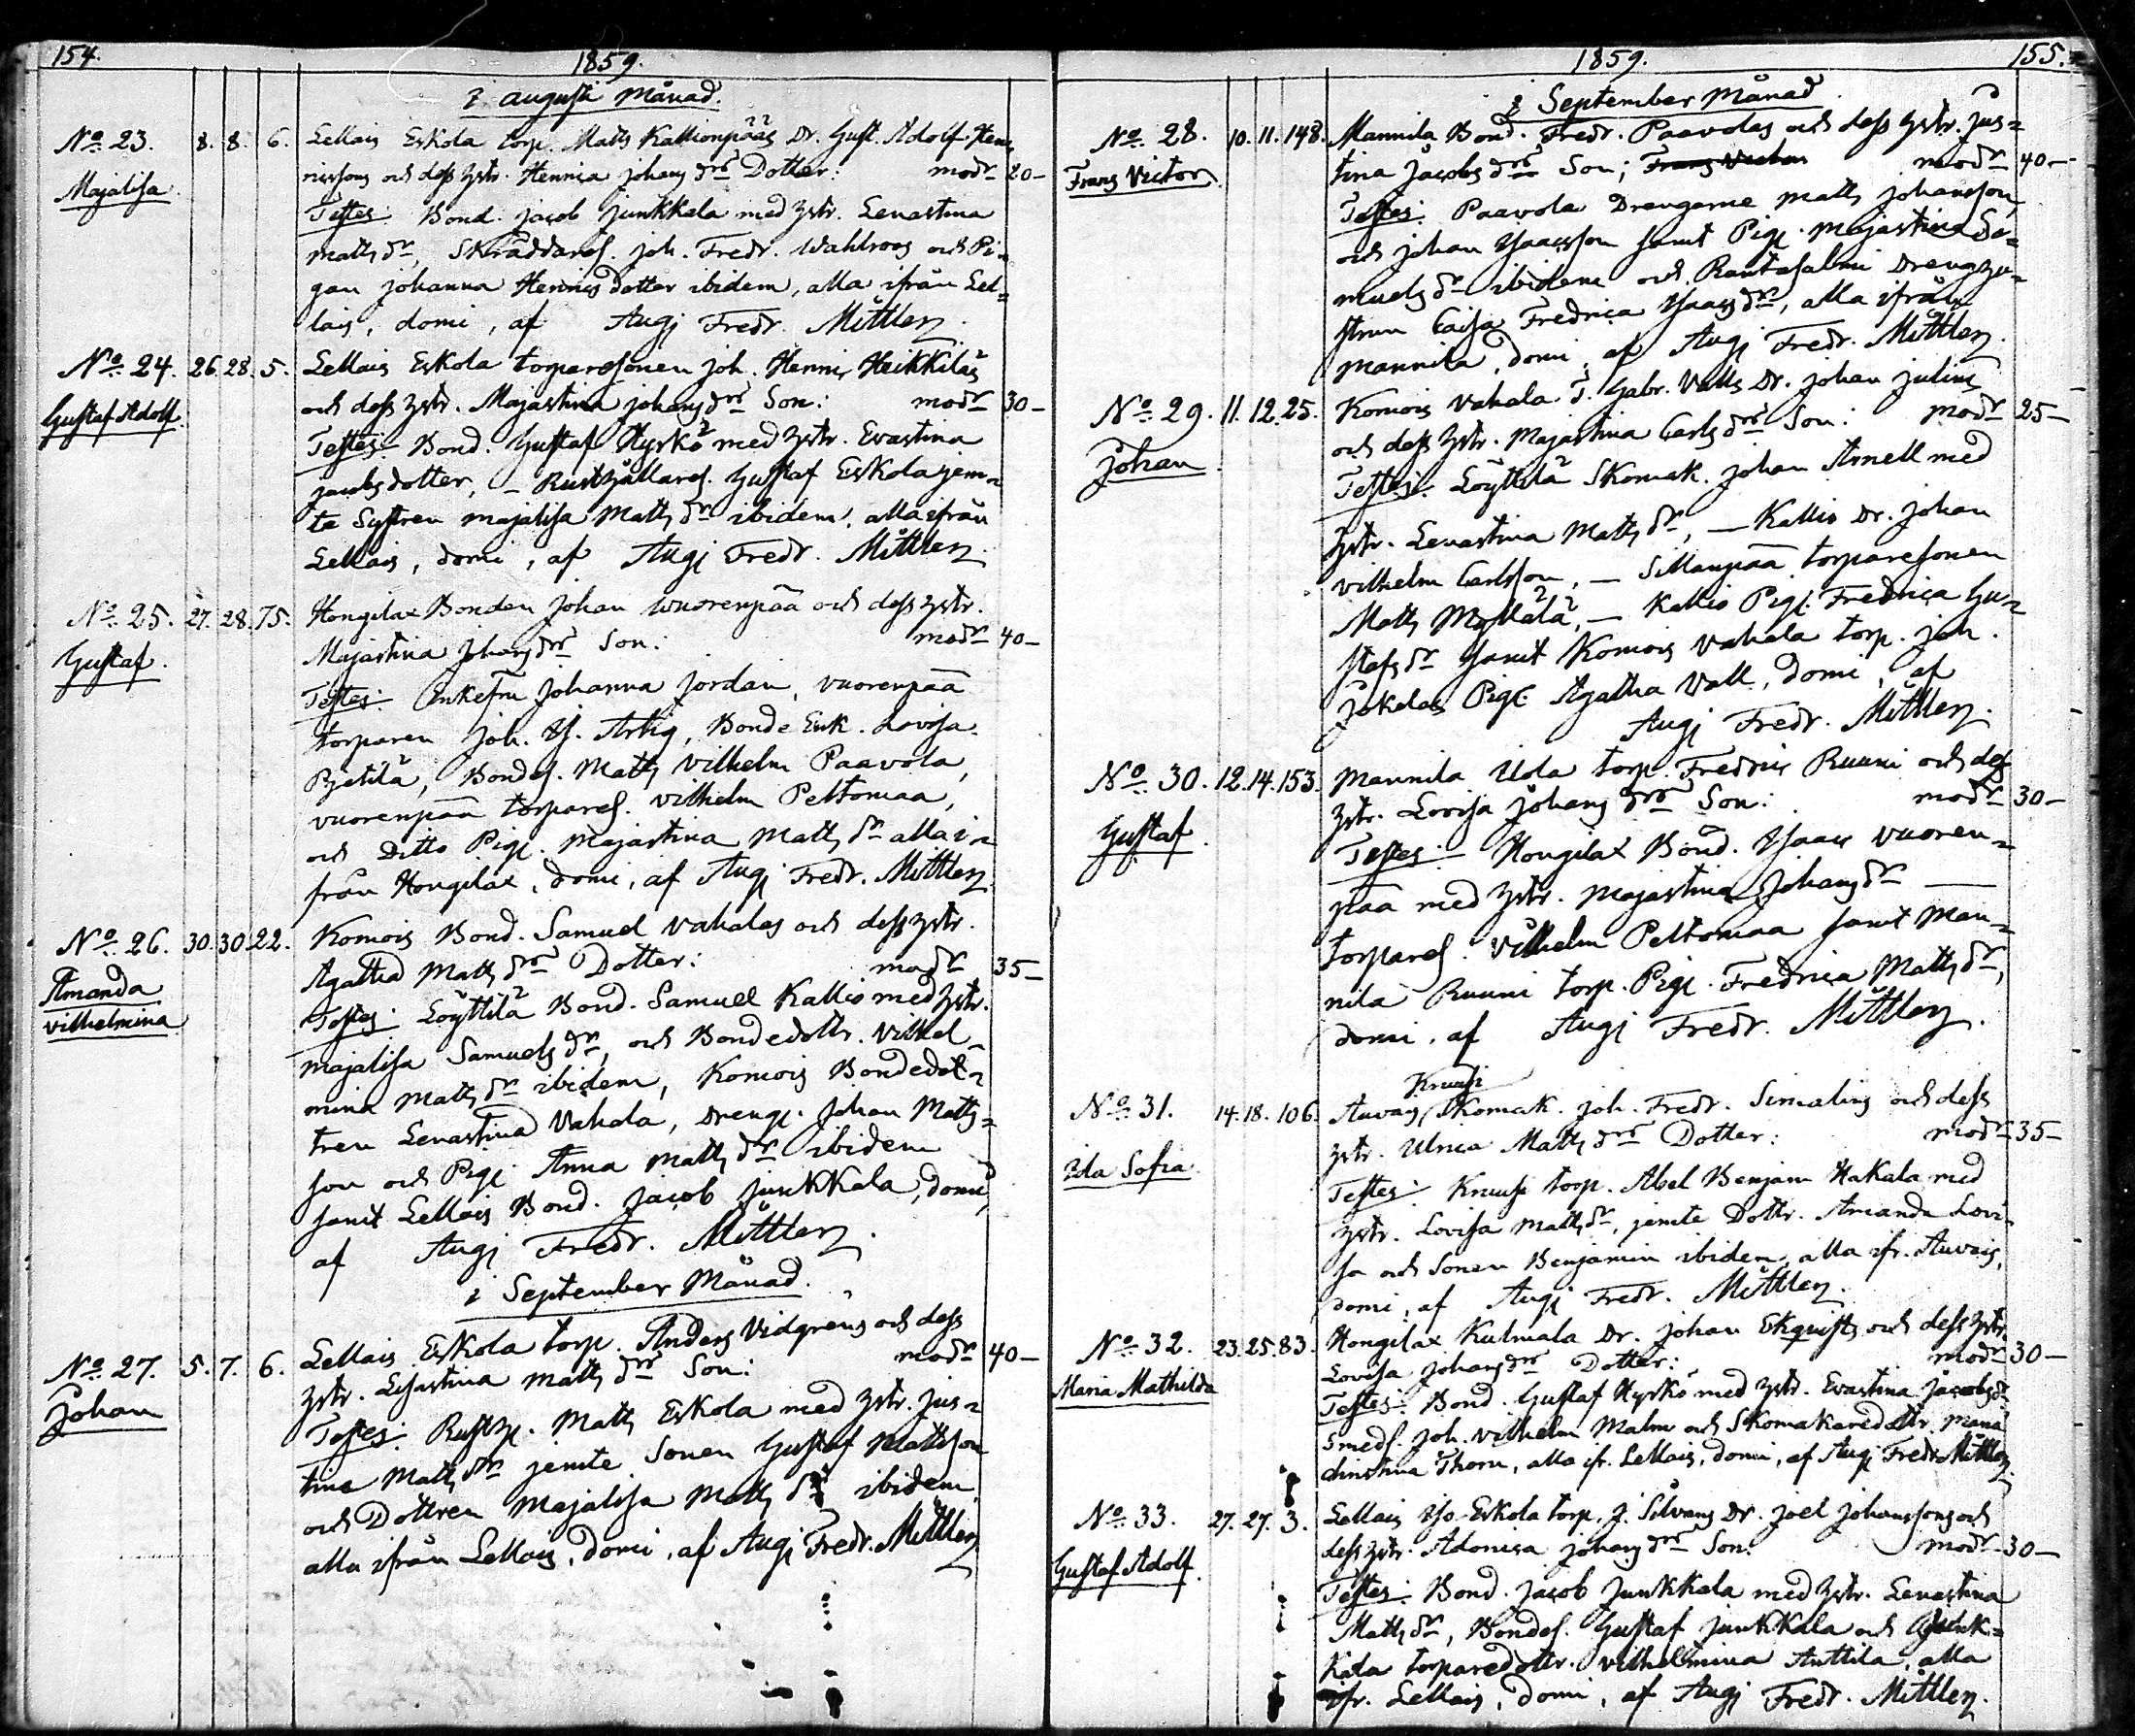 154.
1859.
i augusti Månad.
No. 23. 8. 8. 6. Lellais Eskola torp. Matts Kallionpääs Dr. Gust. Adolf Hen-
Majalisa
ricssons och dess hstr. Henrica Johans drs Dotter: modr 20-
Testes: Bond. Jacob Junkkala med hstr. Lenastina
Matts dr, Skräddares. Joh. Fredr. Wahlroos och Pi-
gan Johanna Henrics dotter ibidem, alla ifrån Lel-
lais, domi, af Augj Fredr. Mittler.
No. 24. 26. 28. 5. Lellais Eskola torparesonen Joh. Henric Heikkiläs
Gustaf Adolf.
och dess hstr. Majastina Johans drs Son: modr 30-
Testes: Bond. Gustaf Hyrkö med hstr. Evastina
Jacobs dotter, – Rusthållares. Gustaf Eskola jem-
te Systren Majalisa Matts dr ibidem, alla ifrån
Lellais, domi, af Augj Fredr. Mittler.
No. 25. 27. 28. 75. Hongilax Bonden Johan Wuorenpää och dess hstr.
Gustaf.
Majastina Johans drs Son: modr 40-
Testes: Enkefru Johanna Jordan, Vuorenpää
torparen Joh. H. Artig, Bonde Enk. Lovisa
Pjetilä, Bondes. Matts Vilhelm Paavola,
Vuorenpää torpares. Vilhelm Peltomaa,
och Ditto Pig. Majastina Matts dr alla i-
från Hongilax, domi, af Augj Fredr. Mittler.
No. 26. 30. 30. 22. Komois Bond. Samuel Vahalas och dess hstr.
Amanda
Vilhelmina
Agatha Matts drs Dotter: modr 35-
Testes: Löyttilä Bond. Samuel Kallio med hstr.
Majalisa Samuels dr, och Bondedottr. Vilhel-
mina Matts dr ibidem, Komois Bondedot-
tren Lenastina Vahala, Dreng. Johan Matts-
son och Pig. Anna Matts dr ibidem
samt Lellais Bond. Jacob Junkkala, domi,
af Augj Fredr. Mittler.
i September Månad.
No. 27. 5. 7. 6. Lellais Eskola torp. Anders Vidgrens och dess
Johan
hstr. Lisastina Matts drs Son: modr 40-
Testes: Rusth. Matts Eskola med hstr. Jus-
tina Matts dr jemte Sonen Gustaf Mattsson
och Dottren Majalisa Matts dr ibidem
alla ifrån Lellais, domi, af Augj Fredr. Mittler
1859.
155.
i September Månad
No. 28. 10. 11. 148. Mannila Bond. Fredr. Paavolas och dess hstr. Jus-
Frans Victor
tina Jacobs drs Son; Frans Victor modr 40-
Testes: Paavola Drengarne Matts Johansson,
och Johan Isaacsson samt Pig. Majastina Sa-
muels dr ibidem och Rantasalmi Drenghu-
strun Caisa Fredrica Isaacs dr, alla ifrån
Mannila, domi, af Augj Fredr. Mittler.
No. 29. 11. 12. 25. Komois Vahala T. Gabr. Valls Dr. Johan Julius
Johan
och dess hstr. Majastina Carls drs Son: modr 25-
Testes: Löyttilä Skomak. Johan Arnell med
hstr. Lenastina Matts dr, – Kallio Dr. Johan
Vilhelm Carlsson, – Sillanpää torparesonen
Matts Myllälä, – Kallio Pig. Fredrica Gu-
stafs dr samt Komois Vahala torp. Joh.
Jokelas Pig. Agatha Vall, domi, af
Augj Fredr. Mittler.
No. 30. 12. 14. 153. Mannila Uola torp. Fredric Ruuni och dess
Gustaf
hstr. Lovisa Johans drs Son: modr 30-
Testes: Hongilax Bond. Isaac Vuoren-
pää med hstr. Majastina Johans dr –
torpares. Vilhelm Peltomaa samt Man-
nila Ruuni torp. Pig. Fredrica Matts dr,
domi, af Augj Fredr. Mittler.
Kruusi
No. 31. 14. 18. 106. Auvais, Skomak. Joh. Fredr. Simalins och dess
Ida Sofia
hstr. Ulrica Matts drs Dotter: modr 35-
Testes: Kruusi torp. Abel Benjam Hakala med
hstr. Lovisa Matts dr, jemte Dottr. Amanda Lovi-
sa och Sonen Benjamin ibidem, alla ifr. Auvais,
domi, af Augj Fredr. Mittler.
No. 32. 23. 25. 83. Hongilax Kulmala Dr. Johan Ekqvists och dess hstr.
Maria Mathilda
Lovisa Johans drs Dotter: modr 30-
Testes: Bond. Gustaf Hyrkö med hstr. Evastina Jacobs dr
Smeds. Joh. Vilhelm Malm och Skomakaredottr. Maria
Christina Thorn, alla ifr. Lellais, domi, af Augj Fredr. Mittler
No. 33. 27. 27. 3. Lellais Iso-Eskola torp. J. Silvans Dr. Joel Johanssons och
Gustaf Adolf.
dess hstr. Adonica Johans drs Son: modr 30-
Testes: Bond. Jacob Junkkala med hstr. Lenastina
Matts dr, Bondes. Gustaf Junkkala och Junk-
kala torparedottr. Vilhelmina Anttila, alla
ifr. Lellais, domi, af Augj Fredr. Mittler.